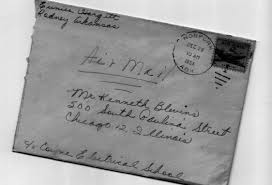 Eunice Hargett
Rodney Arkansas
NORFORK
DEC 28
10 AM
ARK.
Air Mail
Mr Kenneth Blevins
500 South Paulina Street
Chicago 12, Illinois
c/o Coyne Electrical School